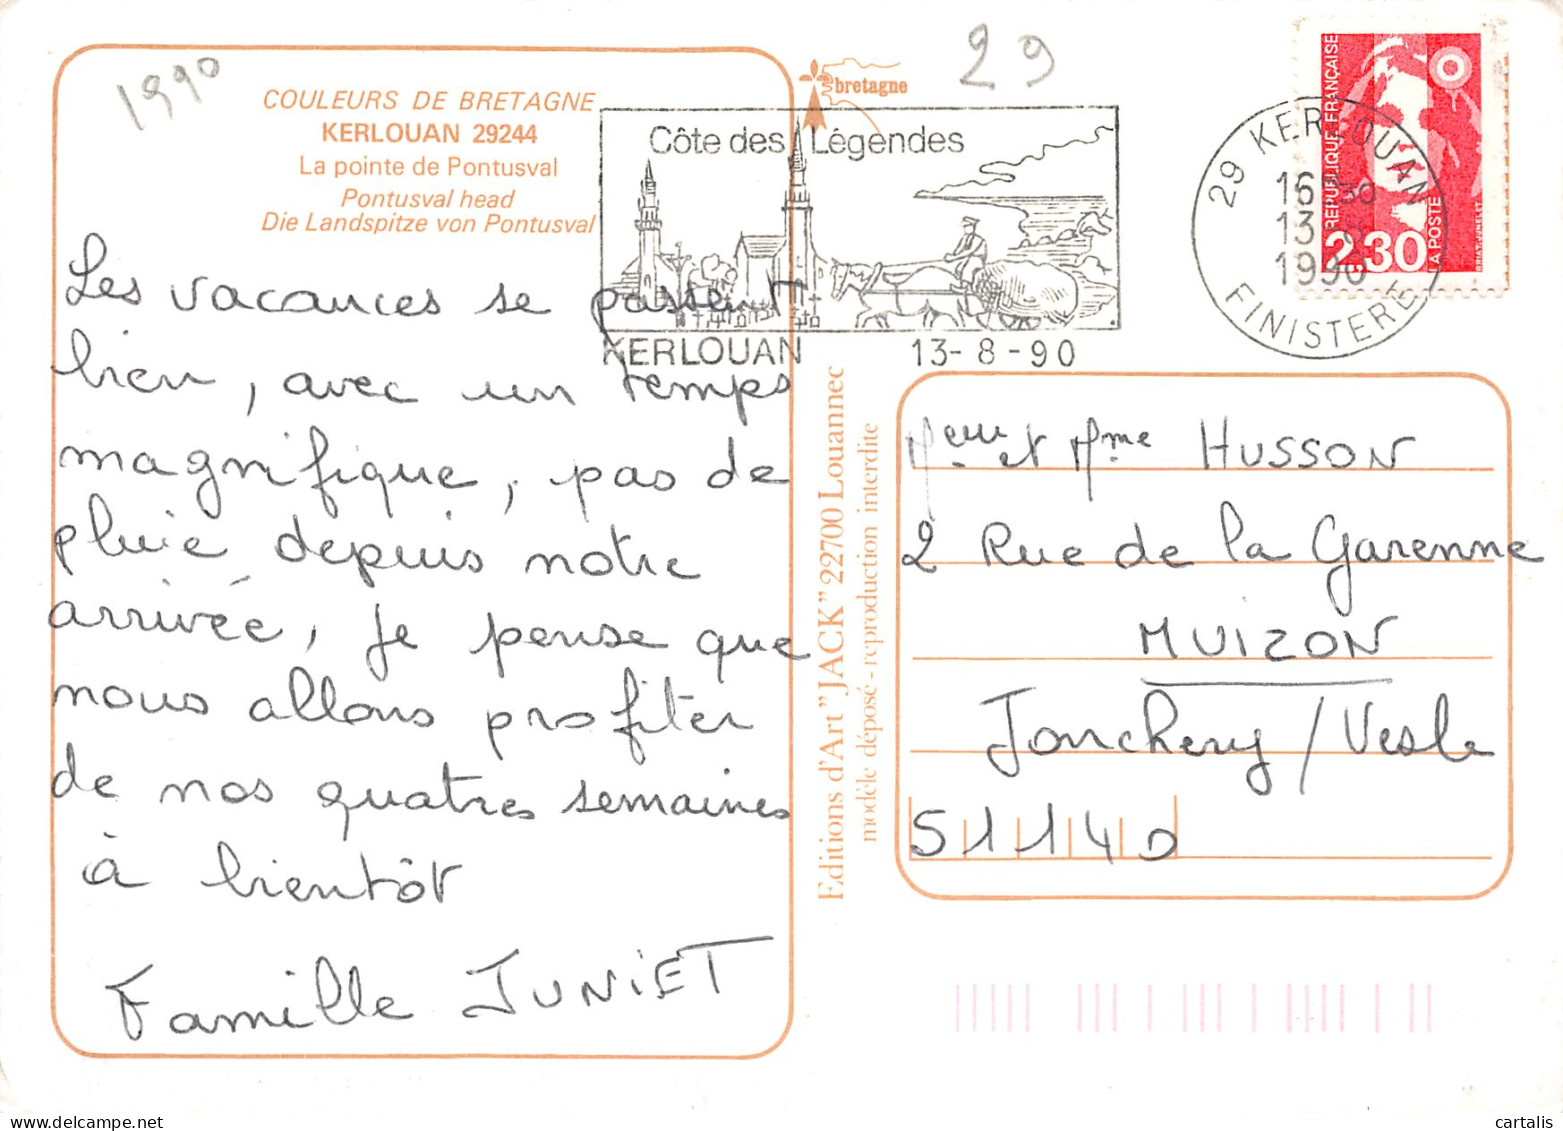 1990
29
COULEURS DE BRETAGNE
KERLOUAN 29244
La pointe de Pontusval
Pontusval head
Die Landspitze von Pontusval
bretagne
Côte des Légendes
KERLOUAN 13-8-90
29 KERLOUAN
16H30
13-8
1990
FINISTERE
REPUBLIQUE FRANÇAISE
2,30
LA POSTE
Les vacances se passent
bien, avec un temps
magnifique, pas de
pluie depuis notre
arrivée, je pense que
nous allons profiter
de nos quatres semaines
à bientôt
Famille JUNIET
Editions d'Art "JACK" 22700 Louannec
modèle déposé - reproduction interdite
Meur et Mme HUSSON
2 Rue de la Garenne
MUIZON
Jonchery / Vesle
51140
cartalis